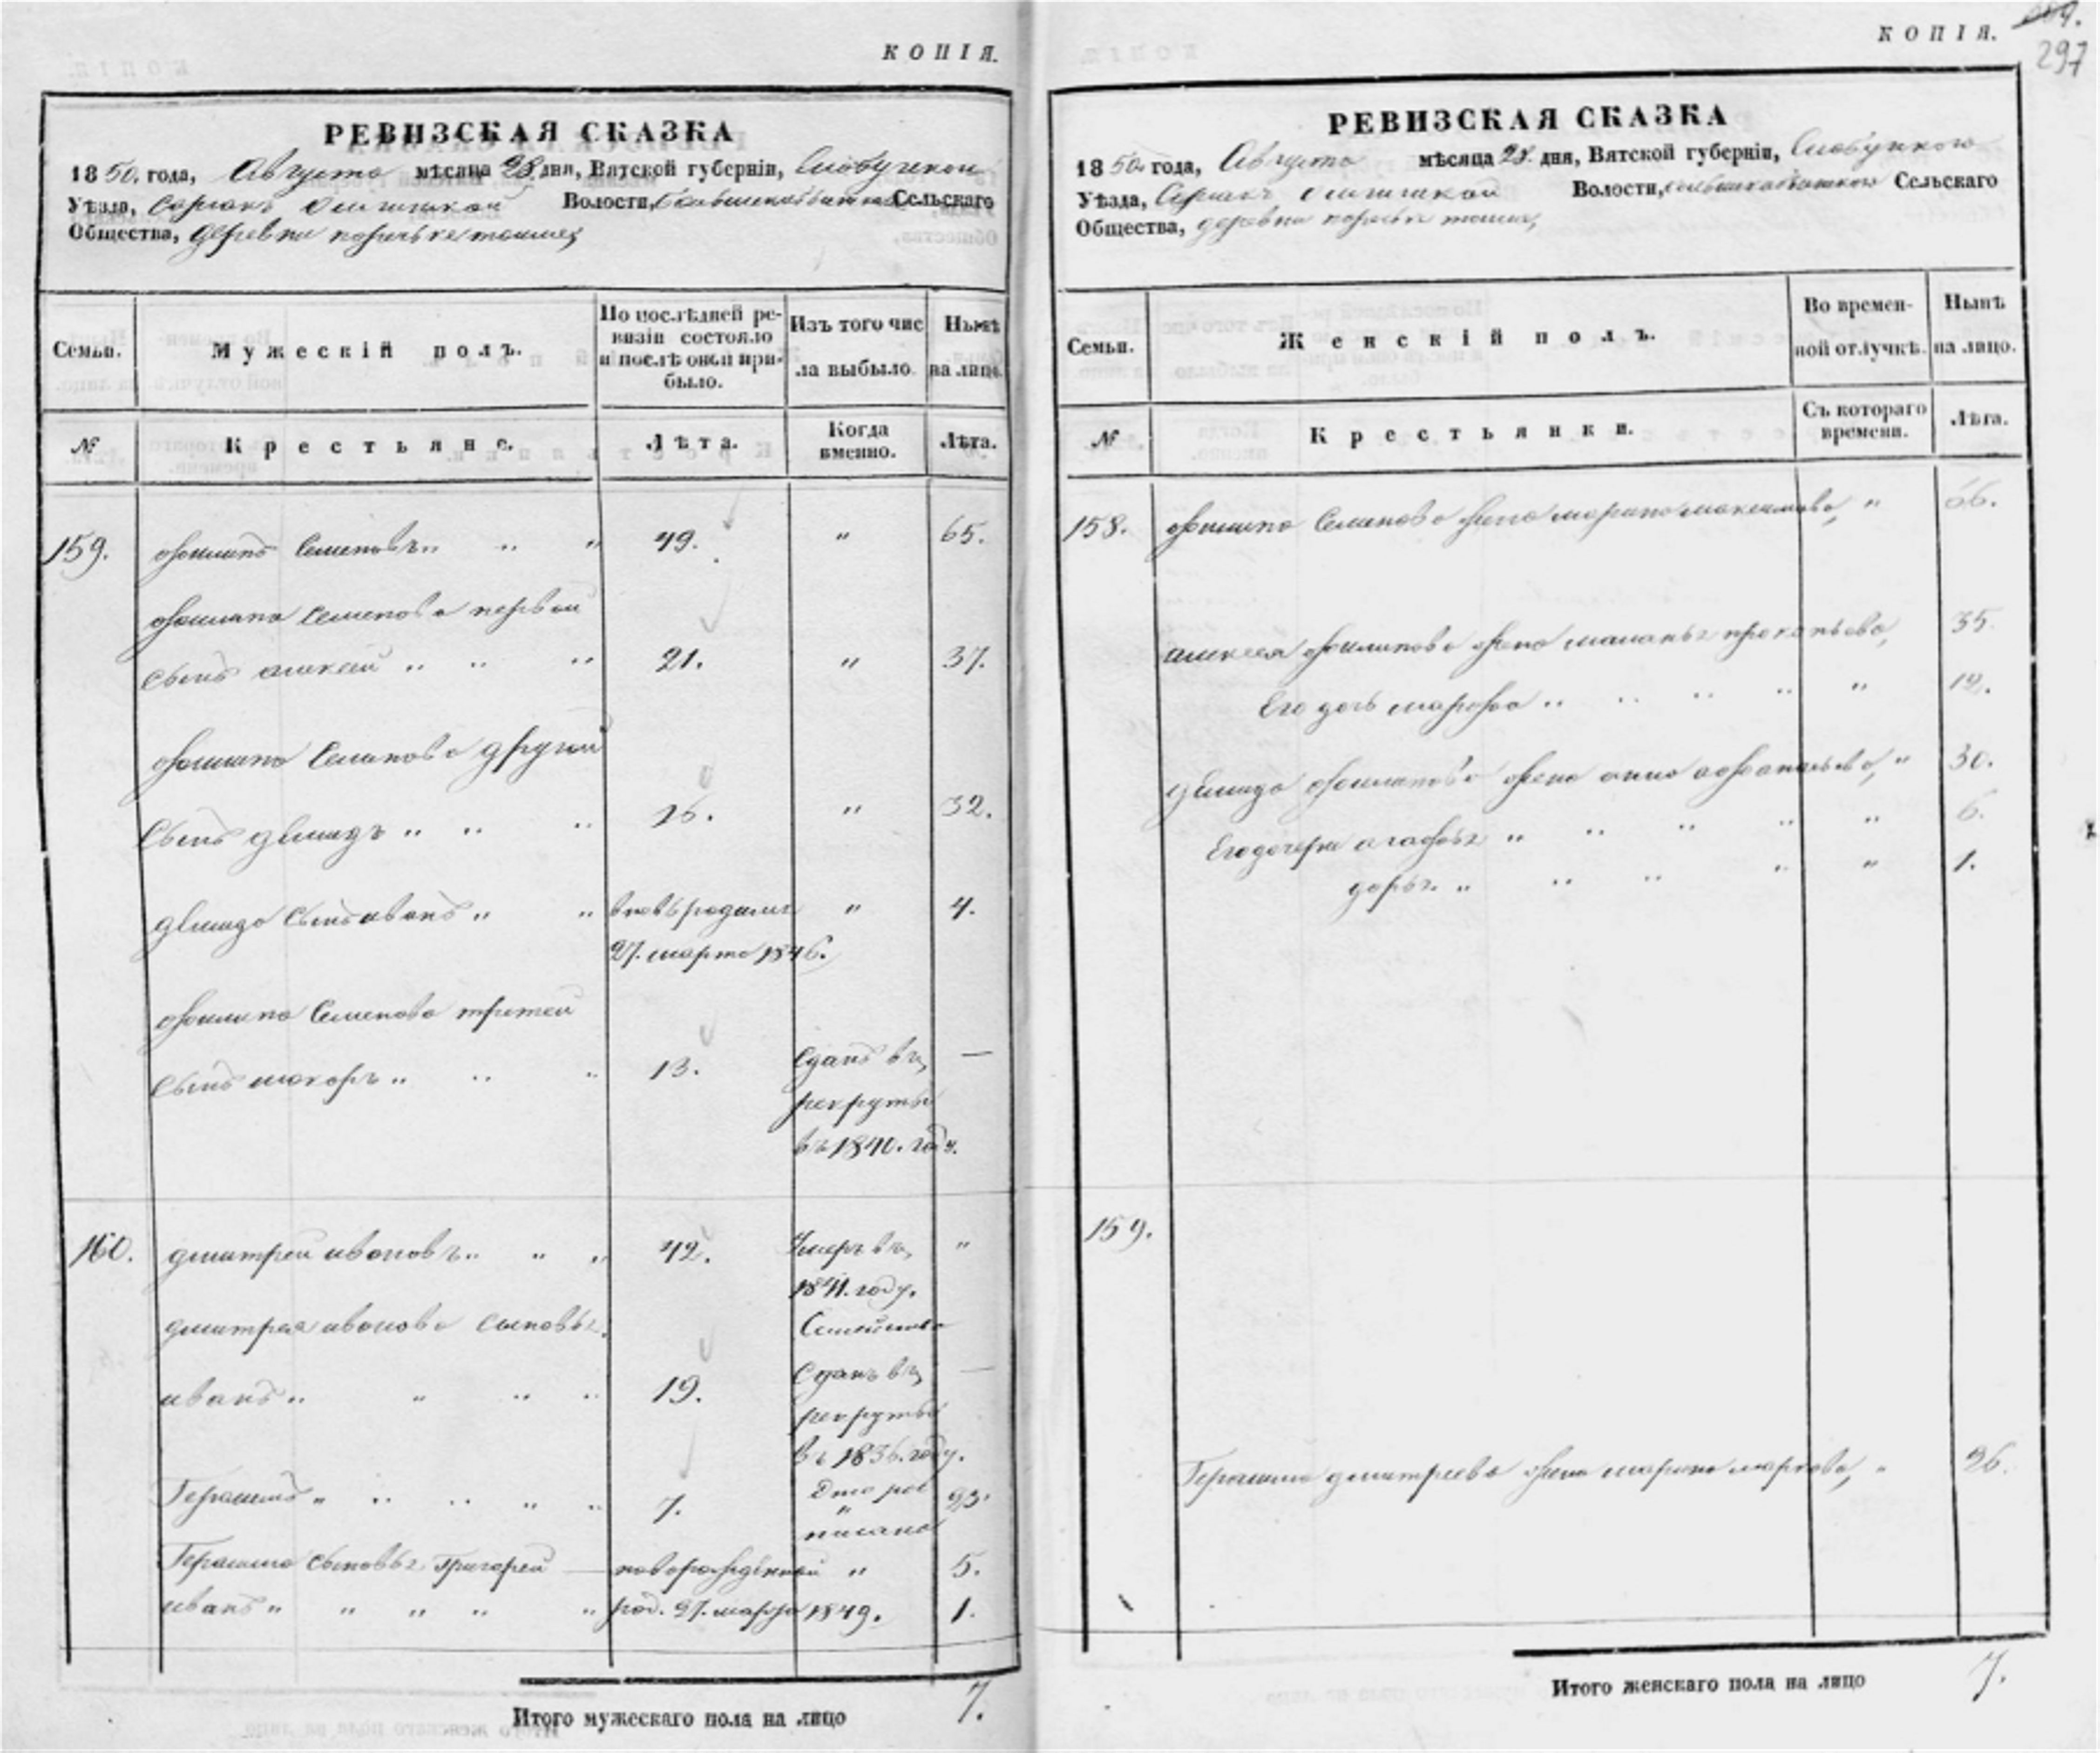 КОПІЯ.
РЕВИЗСКАЯ СКАЗКА
1850. года, Августа мѣсяца 28 дня, Вятской губерніи,
Уѣзда, Волости, Сельскаго
Общества, деревни
Семьи.
Мужескій полъ.
По послѣдней ре-
визіи состояло
и послѣ оной при-
было.
Изъ того чис
ла выбыло.
Нынѣ
на лицо.
№
Крестьяне.
Лѣта.
Когда
именно.
Лѣта.
159. Филипъ Семеновъ „ „ „ 49. „ 65.
Филипа Семенова первой
сынъ алексей „ „ „ 21. „ 37.
Филипа Семенова другой
сынъ дѣмидъ „ „ „ 16. „ 32.
дѣмида сынъ иванъ „ „ вновь родился „ 4.
27. марта 1846.
Филипа Семенова третей
сынъ макаръ „ „ „ 13. Сданъ въ —
рекруты
въ 1840. году.
160. дмитрей ивановъ „ „ „ 42. Умеръ въ „
1841. году.
дмитрея иванова сыновья
иванъ „ „ „ „ 19. Сданъ въ —
рекруты
въ 1836. году.
Герасимъ „ „ „ „ „ 7. 23.
Герасима сыновья Григорей — новорожденной „ 5.
иванъ „ „ „ „ „ род. 27. марта 1849. 1.
Итого мужескаго пола на лицо 7.
КОПІЯ.
297
РЕВИЗСКАЯ СКАЗКА
1850. года, Августа мѣсяца 28. дня, Вятской губерніи,
Уѣзда, Волости, Сельскаго
Общества, деревни
Семьи.
Женскій полъ.
Во времен-
ной отлучкѣ.
Нынѣ
на лицо.
№
Крестьянки.
Съ котораго
времени.
Лѣта.
158. Филипа Семенова жена марина максимова, „ 66.
алексея филипова жена маланья прокопьева, 35.
Его дочь марфа „ „ „ „ „ 12.
дѣмида филипова жена анна „ 30.
Его дочери агафья „ „ „ „ „ 6.
дарья „ „ „ „ „ 1.
159.
Герасима дмитреева жена марина маркова, „ 26.
Итого женскаго пола на лицо 7.